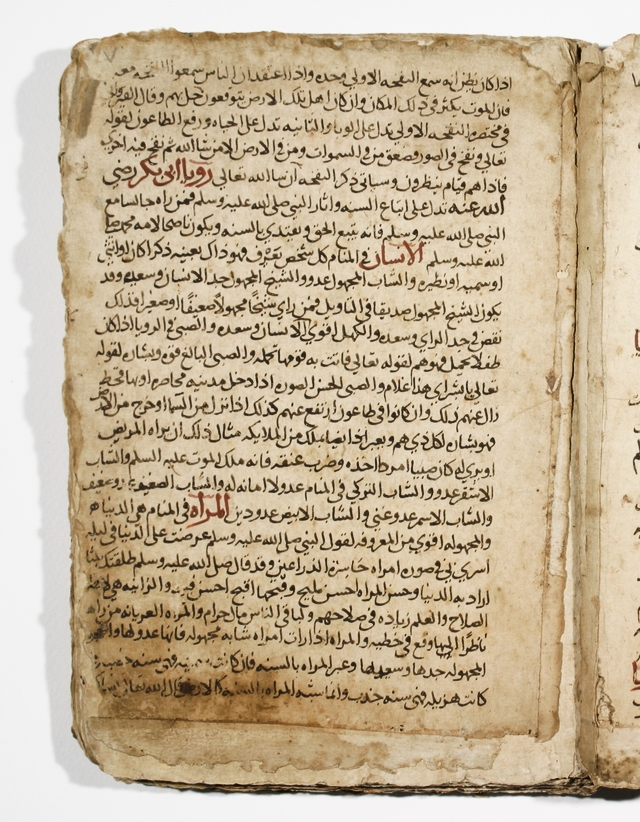 اذا كان يظن انه سمع النفخه الاولي وحده واذا اعتقد ان الناس سمعوا النفخه معه
فان الموت يكثر في ذلك المكان وان كان اهل تلك الارض يتوقعون
النفخه الاولي تدل علي الوبا والثانيه تدل علي الحياه ورفع الطاعون لقوله
تعالي ونفخ في الصور فصعق من في السموات ومن في الارض الا من شا الله ثم نفخ فيه اخري
فاذا هم قيام ينظرون وسياتي ذكر النفخه ان شا الله تعالي رويا ابي بكر رضي
الله عنه تدل علي اتباع السنه واثار النبي صلي الله عليه وسلم فمن راه جالسا مع
النبي صلي الله عليه وسلم فانه يتبع الحق ويقتدي بالسنه ويكون ناصحا لامه محمد صلي
الله عليه وسلم الانسان في المنام كل شخص يعرف فهو ذاك بعينه ذكرا كان او انثي
او سميه او نظيره والشاب المجهول عدو والشيخ المجهول جد الانسان وسعده وقد
يكون الشيخ المجهول صديقا في التاويل فمن راي شيخا مجهولا ضعيفا او صغيرا فذلك
نقص في جد الراي وسعده والكهل اقوي الانسان وسعده والصبي في الرويا اذا كان
طفلا يحمل فهو هم لقوله تعالي فاتت به قومها تحمله والصبي البالغ قوه وبشاره لقوله
تعالي يا بشراي هذا غلام والصبي الحسن الصوره اذا دخل مدينه محاصره او بها قحط
زال عنهم ذلك وان كانوا في طاعون ارتفع عنهم كذلك اذا نزل من السما او خرج من الارض
فهو بشاره لكل ذي هم ويعبر اذا ايضا بملك من الملايكه مثال ذلك ان يراه المريض
او يري له كان صبيا امرط اخذه وضرب عنقه فانه ملك الموت عليه السلم والشاب
الاشقر عدو والشاب التركي في المنام عدو لا امانه له والشاب الضعيف عدو ضعيف
والشاب الاسمر عدو غني والشاب الابيض عدو دين المراه في المنام هي الدنيا
والمجهوله اقوي من المعروفه لقول النبي صلي الله عليه وسلم عرضت علي الدنيا في ليله
اسري بي في صوره امراه حاسرة الذراعين وقد قال صلي الله عليه وسلم طلقتك ثلثا
اراد به الدنيا وحسن المراه احسن مليح وقبحها اقبح
الصلاح والعلم زياده في صلاحهم وكما في الناس مال حرام والمراه العريانه من راها
ناظرا اليها وقع في خطيه والمراه اذا رات امراه شابه مجهوله فانها عدو لها
المجهوله جدها وسعيها وعبر المراه بالسنه فان كانت سمينه فهي سنه خصبه
كانت هزيله فهي سنه جدب وانما شبه المراه بالسنه كالارض قال الله تعالي